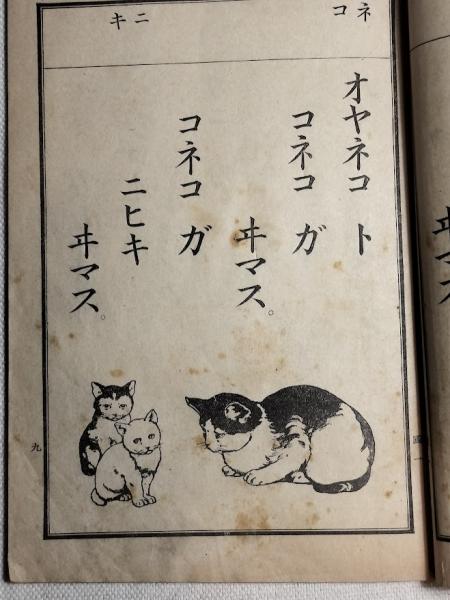 ヰマス
ネコ
ニキ
オヤネコ ト
コネコ ガ
ヰマス。
コネコ ガ
ニヒキ
ヰマス。
九